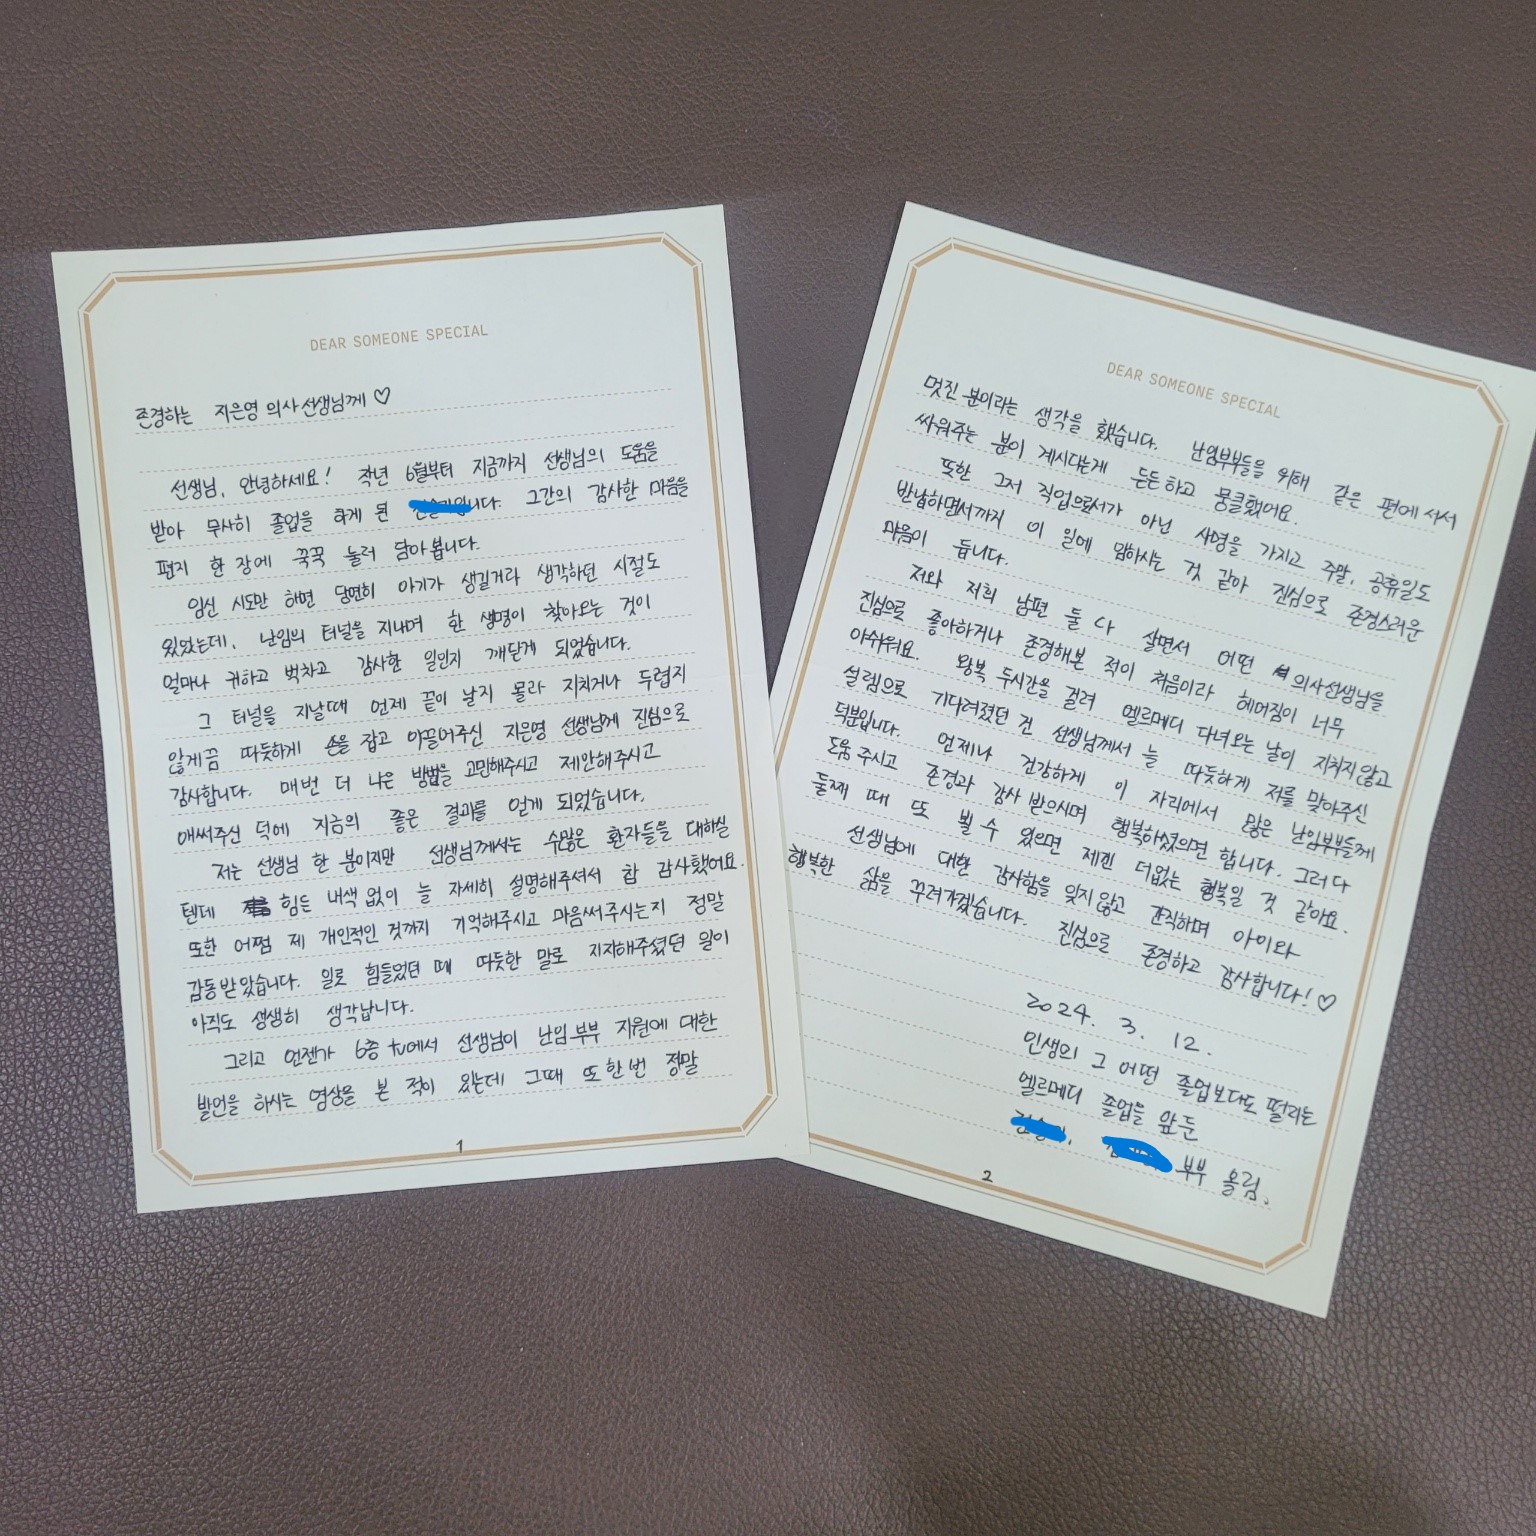 DEAR SOMEONE SPECIAL
존경하는 지은영 의사선생님께 ♡
선생님, 안녕하세요! 작년 6월부터 지금까지 선생님의 도움을
받아 무사히 졸업을 하게 된 니다. 그간의 감사한 마음을
편지 한 장에 꾹꾹 눌러 담아봅니다.
임신 시도만 하면 당연히 아기가 생길거라 생각하던 시절도
있었는데, 난임의 터널을 지내며 한 생명이 찾아오는 것이
얼마나 귀하고 벅차고 감사한 일인지 깨닫게 되었습니다.
그 터널을 지날때 언제 끝이 날지 몰라 지치거나 두렵지
않게끔 따듯하게 손을 잡고 이끌어주신 지은영 선생님께 진심으로
감사합니다. 매번 더 나은 방법을 고민해주시고 제안해주시고
애써주신 덕에 지금의 좋은 결과를 얻게 되었습니다.
저는 선생님 한 분이지만 선생님께서는 수많은 환자들을 대하실
텐데 힘든 내색 없이 늘 자세히 설명해주셔서 참 감사했어요.
또한 어쩜 제 개인적인 것까지 기억해주시고 마음써주시는지 정말
감동받았습니다. 일로 힘들었던 때 따듯한 말로 지지해주셨던 일이
아직도 생생히 생각납니다.
그리고 언젠가 6층 tv에서 선생님이 난임부부 지원에 대한
발언을 하시는 영상을 본 적이 있는데 그때 또한번 정말
1
DEAR SOMEONE SPECIAL
멋진 분이라는 생각을 했습니다. 난임부부들을 위해 같은 편에 서서
싸워주는 분이 계시다는게 든든하고 뭉클했어요.
또한 그저 직업으로서가 아닌 사명을 가지고 주말, 공휴일도
반납하면서까지 이 일에 임하시는 것 같아 진심으로 존경스러운
마음이 듭니다.
저와 저희 남편 둘 다 살면서 어떤 의사선생님을
진심으로 좋아하거나 존경해본 적이 처음이라 헤어짐이 너무
아쉬워요. 왕복 두시간을 걸려 엘르메디 다녀오는 날이 지치지않고
설렘으로 기다려졌던 건 선생님께서 늘 따듯하게 저를 맞아주신
덕분입니다. 언제나 건강하게 이 자리에서 많은 난임부부들께
도움 주시고 존경과 감사 받으시며 행복하셨으면 합니다. 그러다
둘째 때 또 뵐 수 있으면 제겐 더없는 행복일 것 같아요.
선생님에 대한 감사함을 잊지않고 간직하며 아이와
행복한 삶을 꾸려가겠습니다. 진심으로 존경하고 감사합니다! ♡
2024. 3. 12.
인생의 그 어떤 졸업보다도 떨리는
엘르메디 졸업을 앞둔
부부 올림.
2